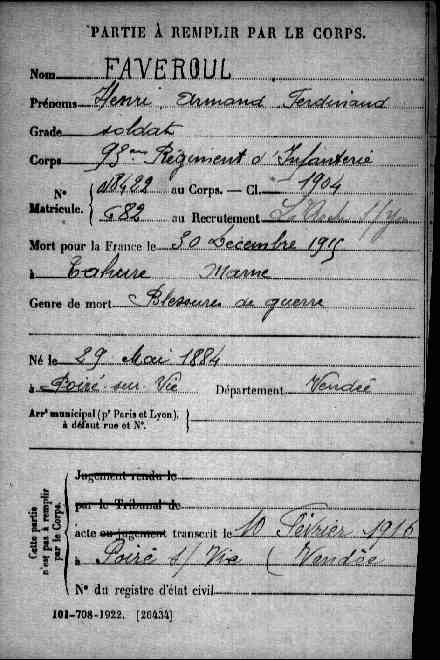 PARTIE À REMPLIR PAR LE CORPS.
Nom FAVEROUL
Prénoms Henri Armand Ferdinand
Grade soldat
Corps 93ème Régiment d'Infanterie
N° Matricule. 8422 au Corps. — Cl. 1904
682 au Recrutement La Roche s/Yon
Mort pour la France le 30 Décembre 1915
à Tahure Marne
Genre de mort Blessures de guerre
Né le 29 Mai 1884
à Poiré-sur-Vie Département Vendée
Arrt municipal (pr Paris et Lyon),
à défaut rue et N°.
Cette partie n'est pas à remplir par le Corps.
Jugement rendu le
par le Tribunal de
acte ou jugement transcrit le 10 Février 1916
à Poiré s/ Vie (Vendée
N° du registre d'état civil
101-708-1922. [26434]